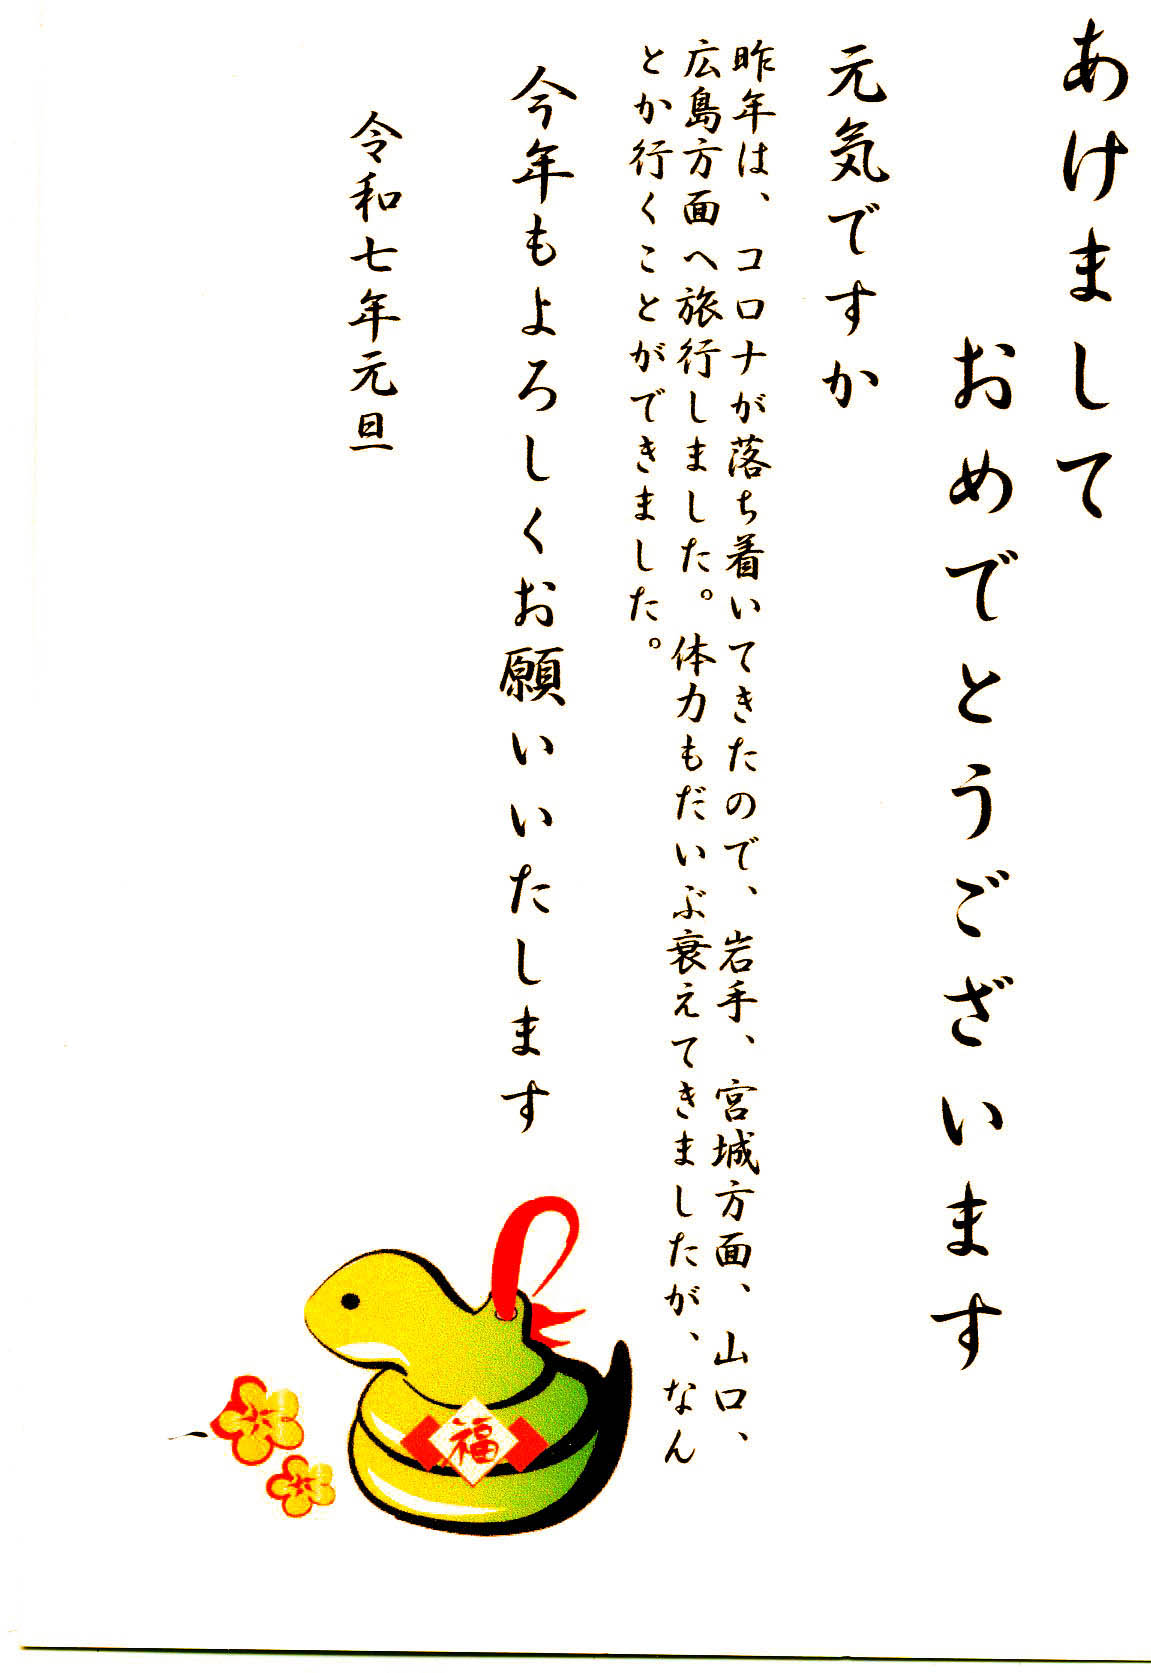 あけまして
おめでとうございます
元気ですか
昨年は、コロナが落ち着いてきたので、岩手、宮城方面、山口、
広島方面へ旅行しました。体力もだいぶ衰えてきましたが、なん
とか行くことができました。
今年もよろしくお願いいたします
令和七年元旦
福